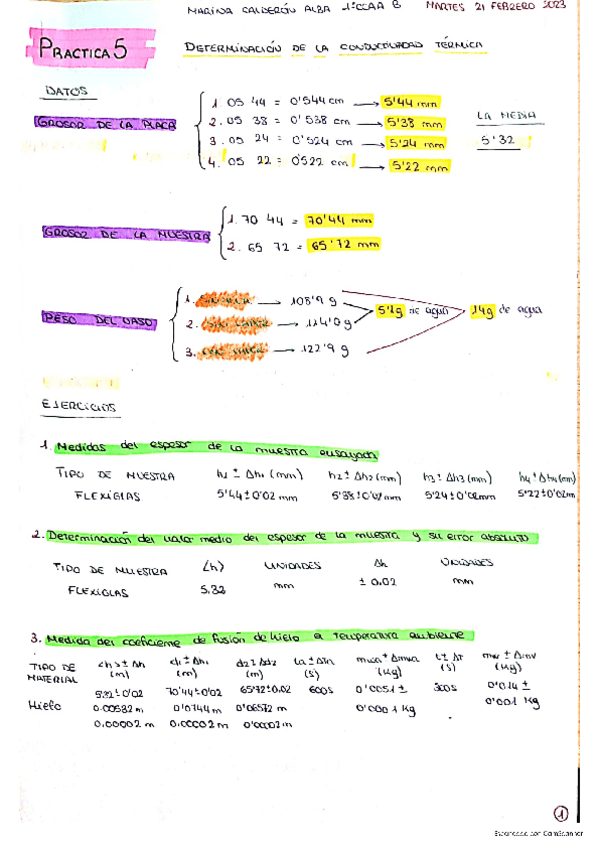 MARINA CALDERÓN ALBA 1ºCCAA B MARTES 21 FEBRERO 2023
PRACTICA 5 DETERMINACIÓN DE LA CONDUCTIVIDAD TÉRMICA
DATOS
GROSOR DE LA PLACA
1. 05 44 = 0'544 cm → 5'44 mm
2. 05 38 = 0'538 cm → 5'38 mm
3. 05 24 = 0'524 cm → 5'24 mm
4. 05 22 = 0'522 cm → 5'22 mm
LA MEDIA
5'32
GROSOR DE LA MUESTRA
1. 70 44 = 70'44 mm
2. 65 72 = 65'72 mm
PESO DEL VASO
1. → 108'9 g
2. → 114'0 g
3. → 122'9 g
5'1g de agua 14g de agua
EJERCICIOS
1. Medidas del espesor de la muestra ensayada
TIPO DE MUESTRA h1 ± Δh1 (mm) h2 ± Δh2 (mm) h3 ± Δh3 (mm) h4 ± Δh4 (mm)
FLEXIGLAS 5'44±0'02 mm 5'38±0'02mm 5'24±0'02mm 5'22±0'02m
2. Determinación del valor medio del espesor de la muestra y su error absoluto
TIPO DE MUESTRA ⟨h⟩ UNIDADES Δh UNIDADES
FLEXIGLAS 5.32 mm ± 0.02 mm
3. Medida del coeficiente de fusión de hielo a temperatura ambiente
TIPO DE MATERIAL <h>± Δh (m) d1 ± Δd1 (m) d2 ± Δd2 (m) ta ± Δta (s) mwa ± Δmwa (Kg) t ± Δt (s) mw ± Δmw (Kg)
5'32±0'02 70'44±0'02 65'72±0.02 600s 0'0051 ± 300s 0'014 ±
Hielo 0.00532 m 0'0744 m 0'06572 m 0'0001 Kg 0'001 Kg
0.00002 m 0.00002 m 0'00002 m
1
Escaneado con CamScanner